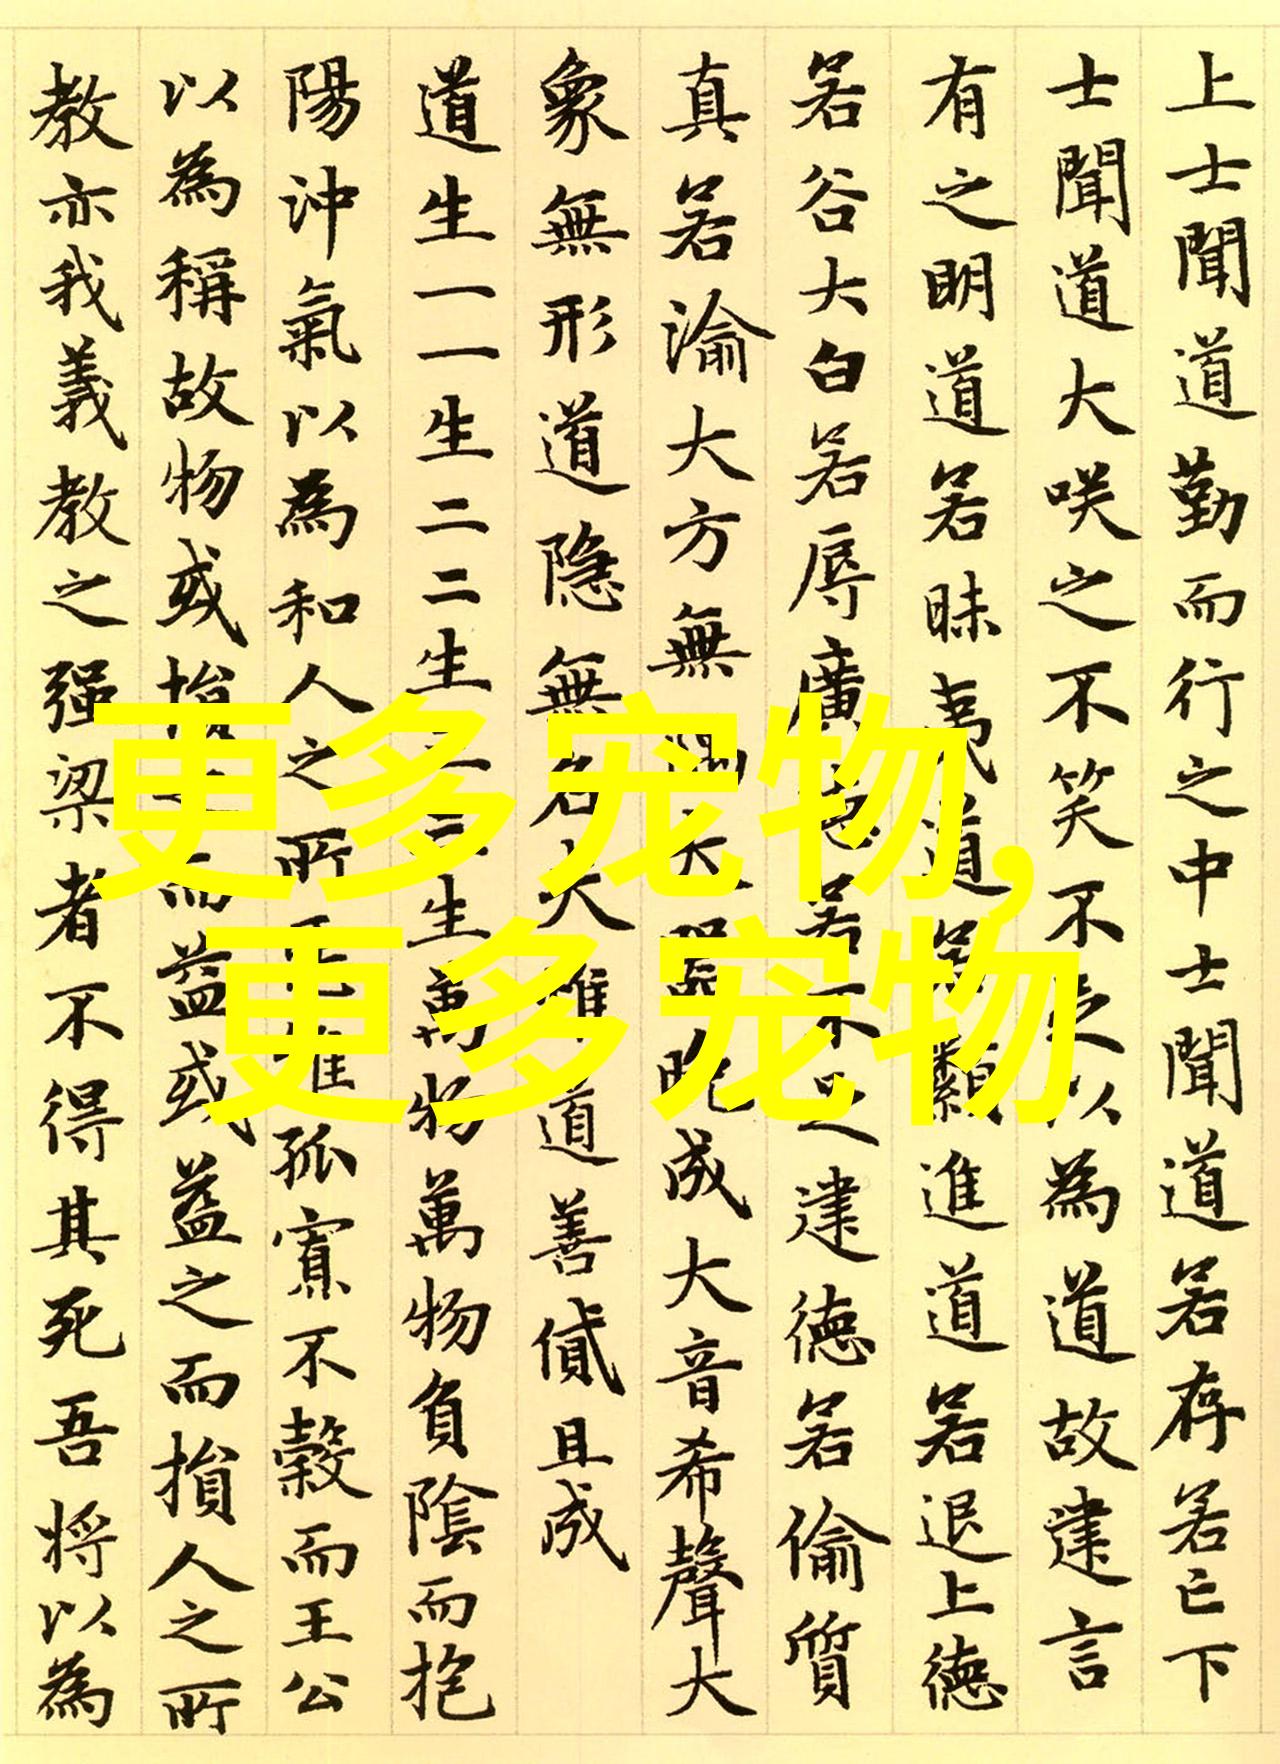 上士聞道勤而行之中士聞道若存若亡下
士聞道大咲之不笑不足以為道故建言
有之明道若昧夷道若類進道若退上德
若谷大白若辱廣德若不足建德若偷質
真若渝大方無隅大器晚成大音希聲大
象無形道隐無名夫唯道善貸且成
道生一一生二二生三三生萬物萬物負陰而抱
陽沖氣以為和人之所惡唯孤寡不穀而王公
以為稱故物或損之而益或益之而損人之所
教亦我義教之强梁者不得其死吾将以為
更多宠物,
更多宠物